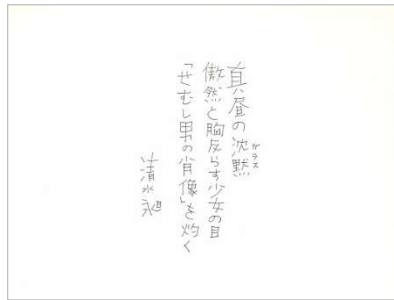 真昼の沈黙
ガラス
傲然と胸反らす少女の目
「せむし男の肖像」を灼く
清水昶